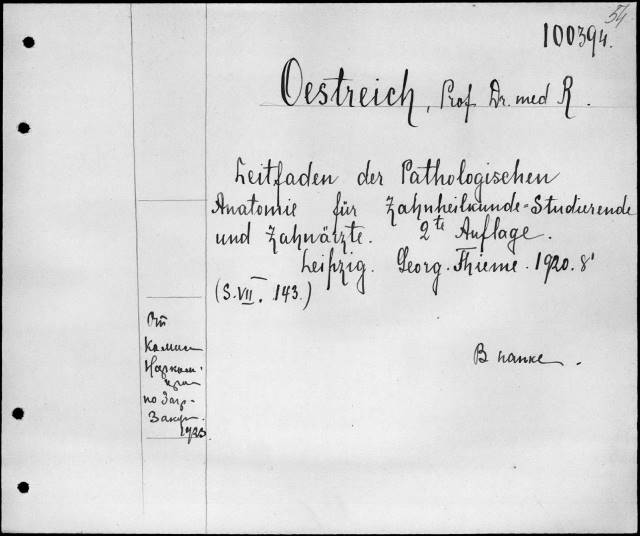 54
100394.
Oestreich, Prof. Dr. med R.
Leitfaden der Pathologischen
Anatomie für Zahnheilkunde=Studierende
und Zahnärzte. 2te Auflage.
Leipzig. Georg. Thieme. 1920. 8°
(S. VII. 143.)
В папке.
От
Комис
Нарком.
по Загр.
Закуп.
1923.